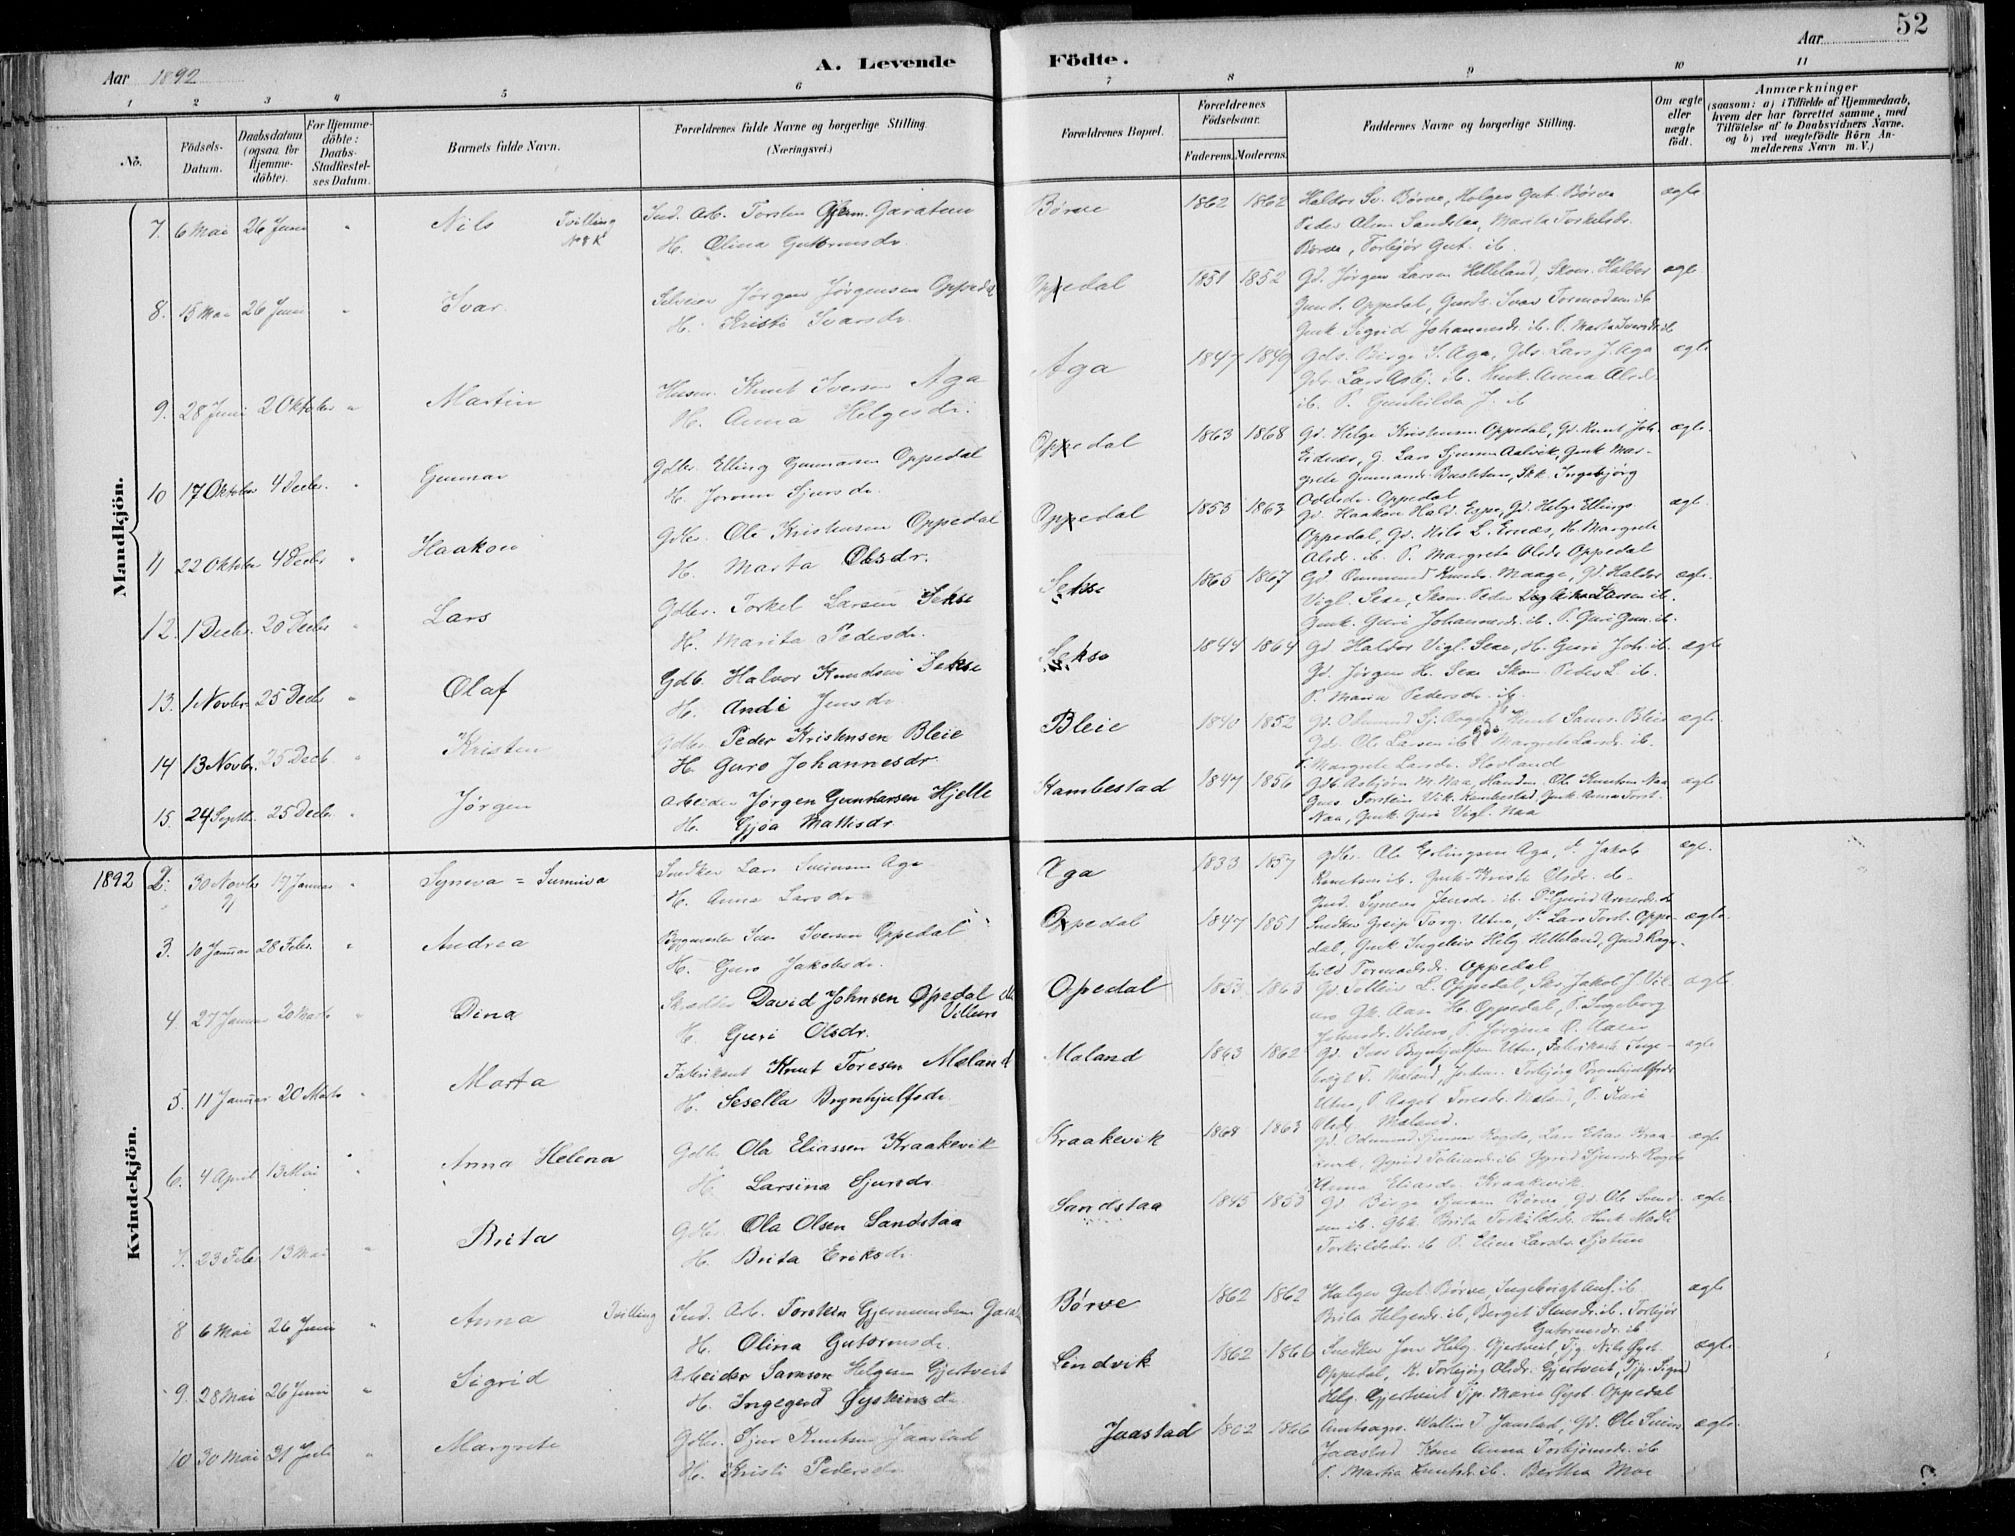 52
Aar 1892
A. Levende
Födte.
Aar
1 2 3 4 5 6 7 8 9 10 11
No.
Födsels-Datum.
Daabsdatum (ogsaa for Hjemme-döbte).
For Hjemme-döbte: Daabs-Stadfæstel-ses Datum.
Barnets fulde Navn.
Forældrenes fulde Navne og borgerlige Stilling.
(Næringsvei.)
Forældrenes Bopæl.
Forældrenes Födselsaar.
Faderens. Moderens.
Faddernes Navne og borgerlige Stilling.
Om ægte eller uægte født.
Anmærkninger
(saasom: a) i Tilfælde af Hjemmedaab, hvem der har forrettet samme, med Tilföielse af to Daabsvidners Navne. og b) ved uægtefödte Börn An-melderens Navn m. V.)
Mandkjön.
7. 6 Mai 26 Juni " Nils Tvilling No 8 K
Ind. Arb. Torsten Gjerm. Garatun
H. Olina Guttormsdr.
Börve 1862 1862
Haldor Sv. Børve, Helge Gut. Børve
Peder Olsen Sandstaa, Marita Torkelsdr.
Børve, Torbjør Gut. ib.
ægte
8. 15 Mai 26 Juni " Ivar
Jørgen Jørgensen Oppedal
H. Kristi Ivarsdr.
Oppedal 1851 1852
Gd. Jørgen Larsen Helleland, Skom. Haldor
Gund. Oppedal, Gards. Ivar Tormodsen ib
Gmk. Sigrid Johannesdr. ib. P. Marta Ivarsdr. ib
ægte
9. 28 Juni 2 Oktober " Martin
Husm. Knut Iversen Aga
H. Anna Helgesdr.
Aga 1847 1849
Gdb. Birge S. Aga, Gds. Lars J. Aga
Gds. Lars Asbj. ib. Gmk. Anna Olsdr.
ib. P. Gunhilda J. ib
ægte
10 17 Oktober 4 Decbr. " Gunnar
Gdbr. Elling Gunnarsen Oppedal
H. Joronn Sjursdr.
Oppedal 1863 1868
Gd. Helge Kristensen Oppedal, Gd. Knut Joh.
Eidnes, G. Lars Sjursen Aalvik, Gmk Mar-
grete Gunnarsdr. , Ingebjørg
Oddsdr. Oppedal
ægte
11 22 Oktober 4 Decbr " Haakon
Gdbr. Ole Kristensen Oppedal
H. Marta Olsdr.
Oppedal 1853 1863
Gd. Haakon Hald. Espe, Gd. Helge Ellings.
Oppedal, Gd. Nils L. Ernæs, H. Margrete
Olsdr. ib. P. Margreta Olsdr Oppedal
ægte
12. 1 Decbr. 20 Decbr " Lars
Gdbr. Torkel Larsen Sekse
H. Marita Pedersdr.
Sekse 1865 1867
Gd. Ommund Maage, Gd. Haldor
Vigl. Sexe, Skom. Peder Larsen ib.
Gmk. Guri Johannesdr. ib. P. Guri Gun. ib.
ægte
13. 1 Novbr. 25 Decbr " Olaf
Gdb. Halvor Knudsen Sekse
H. Andi Jensdr
Sekse 1844 1864
Gd Haldor Vigl. Sexe, H. Guri Joh. ib.
Gd. Jørgen H. Sexe Skom Peder L. ib.
P. Maria Pedersdr. ib.
ægte
14 13 Novbr. 25 Decb. " Kristen
Gdbr. Peder Kristensen Bleie
H. Guro Johannesdr.
Bleie 1840 1852
Gd. Sj. Rogde, Knut Sams. Bleie
Gdr. Ole Larsen ib. Margreta Larsdr. ib.
P. Margreta Larsdr. Hovland
ægte
15. 24 Septbr. 25 Decbr. " Jørgen
Arbeider Jørgen Gunnarsen Hjelle
H. Gjøa Mattisdr.
Kambestad 1847 1856
Gdb. Asbjørn M. Naa, Handm. Ole Knutsen Naa
Torstein Vik. Kambestad, Gmk Anna Torst.
Naa, Gmk. Guri Vigl. Naa
ægte
Kvindekjön.
1892 2. 30 Novbr 17 Januar " Syneva = Sunniva
Snedker Lars Aga
H. Anna Larsdr
Aga 1833 1857
Gdbr. Ole Erlingsen Aga, Jakob
Knutsen ib. Gmk. Kristi Olsdr. ib.
Syneva Jensdr. ib.
ægte.
3. 10 Januar 28 Febr. " Andrea
Bygmester Iver Iversen Oppedal
H. Guro Jakobsdr.
Oppedal 1847 1851
Snedker Greip Torg. Utne, Lars Torst. Oppe-
dal, Gmk Ingeleiv Helg. Helleland, Ragn-
hild Tormodsdr. Oppedal
ægte
4. 27 Januar 20 Marts " Dina
David Johnsen Opedal
Villure
H. Guri Olsdr.
Opedal 1853 1863
Gd. Tollein L. Oppedal, Jakob J. Vil-
ure H. Oppedal, P. Ingeborg
Johnsdr. Vilure, P. Jørgine O.
ægte
5. 11 Januar 20 Marts " Marta
Fabrikant Knut Toresen Mæland
H. Sesella Brynhjulfsdr.
Mæland 1863 1862
Gd. Ivar Brynhjulfsen Utne, Fabrikant Inge-
brigt T. Mæland, Torbjørg Brynhjulfsdr
Utne, P. Aagot Toresdr. Mæland, P. Kari
Olsdr Mæland.
ægte
6. 4 April 13 Mai " Anna Helena
Gdbr. Ola Eliassen Kraakevik
H. Larsina Sjursdr
Kraakevik 1868 1863
Gd. Odmund Sjursen Rogde, Lars Elias. Kraa-
kevik, Sjursdr Rogde
Anna Eliasdr Kraakevik
ægte
7. 23 Febr 13 Mai " Brita
Gdbr. Ola Olsen Sandstaa
H. Brita Eriksdr.
Sandstaa 1845 1853
Gd Birge Sjursen Børve, Gd. Ole Svend-
sen ib. Gmk. Brita Torkildsdr. Gmk Madle
Torkildsdr. ib P. Elen Larsdr. Sjotun
ægte
8 6 Mai 26 Juni " Anna Tvilling
Ind. Arb. Torstein Gjermundsen Garatun
H. Olina Gutormsdr.
Børve 1862 1862
Helge Gut. Børve, Ingeborg ib
Brita Helgesdr. ib, Berget ib. Torbjør
Gutormsdr. ib
ægte
9. 28 Mai 26 Juni " Sigrid
Arbeider Samson Helgesen Gjertveit
H. Ingegerd Øysteinsdr.
Lindvik 1862 1866
Snedker Jon Helg. Gjertveit, Tjg. Nils Øyst.
Oppedal, H. Torbjørg Olsdr. Gjertveit, Tjp. Sigrid
Helg. Gjertveit Tjp. Marie Øyst. Oppedal
ægte
10 30 Mai 31 Juli " Margrete
Gdbr. Sjur Knutsen Jaastad
H. Kristi Pedersdr
Jaastad 1862 1866
Amtsagr. T. Jaastad, Gd. Ole
Jaastad Kone Anna Torbjørnsdr. ib
P. Martha Knutsdr. ib. Bertha Moe
ægte